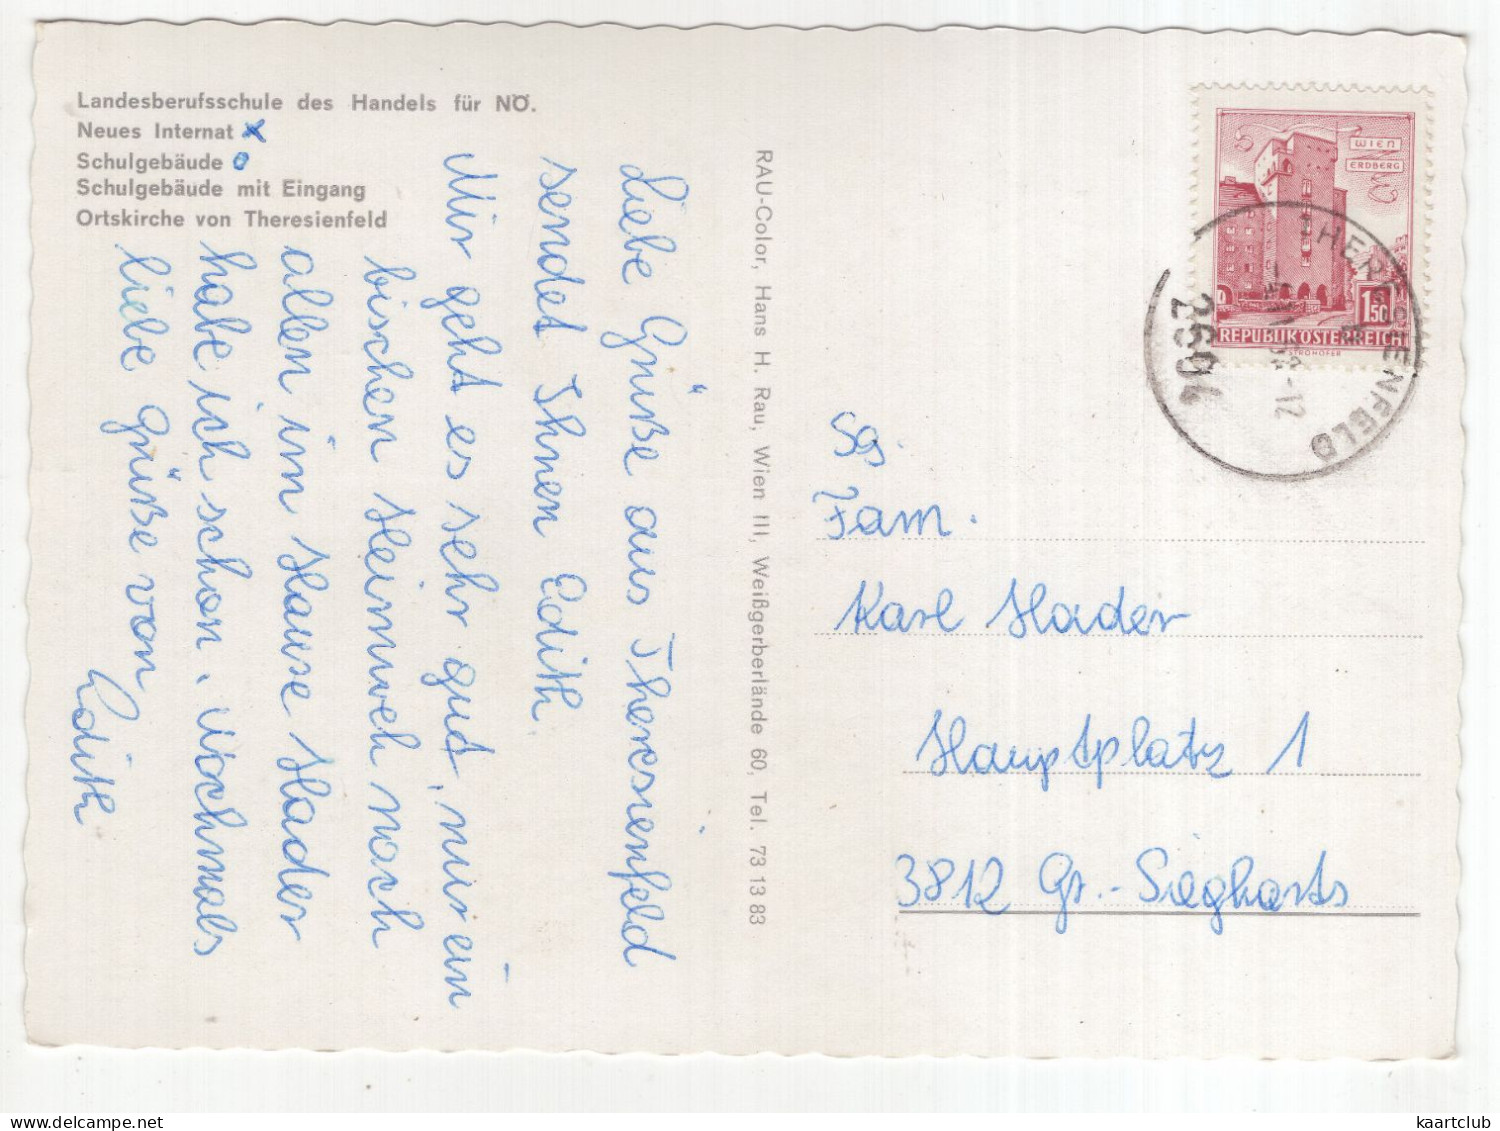 Landesberufsschule des Handels für NÖ.
Neues Internat x
Schulgebäude o
Schulgebäude mit Eingang
Ortskirche von Theresienfeld
Liebe Grüße aus Theresienfeld
sendet Ihnen Edith.
Mir geht es sehr gut, nur ein
bischen Heimweh noch
allen im Hause Hader
habe ich schon. Nochmals
liebe Grüße von
Edith
RAU-Color, Hans H. Rau, Wien III, Weißgerberlände 60, Tel. 73 13 83
WIEN
ERDBERG
1.50
REPUBLIK ÖSTERREICH
STROHOFER
THERESIENFELD
2604
-12
Sg.
Fam.
Karl Hader
Hauptplatz 1
3812 Gr.-Siegharts
kaartclub